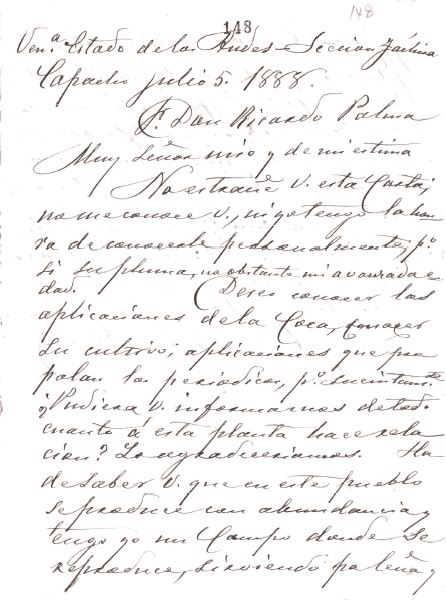 148
148
Ven.ª Estado de los Andes - Seccion Táchira
Capacho julio 5. 1888.
Sr. Don Ricardo Palma
Muy Señor mio y de mi estima
No estrañe V. esta Carta;
no me conoce V., ni yo tengo la hon
ra de conocerle personalmente; p.º
si su pluma, no obstante mi avanzada e
dad. Deseo conocer las
aplicaciones de la Coca, conocer
su cultivo; aplicaciones que pro
palan los periódicos, p.º sucintam.te
¿Pudiera V. informarnos de todo
cuanto á esta planta hace rela
cion? Lo agradeceriamos. Ha
de saber V. que en este pueblo
se produce con abundancia y
tengo yo un Campo donde se
reproduce, sirviendo pa leña y